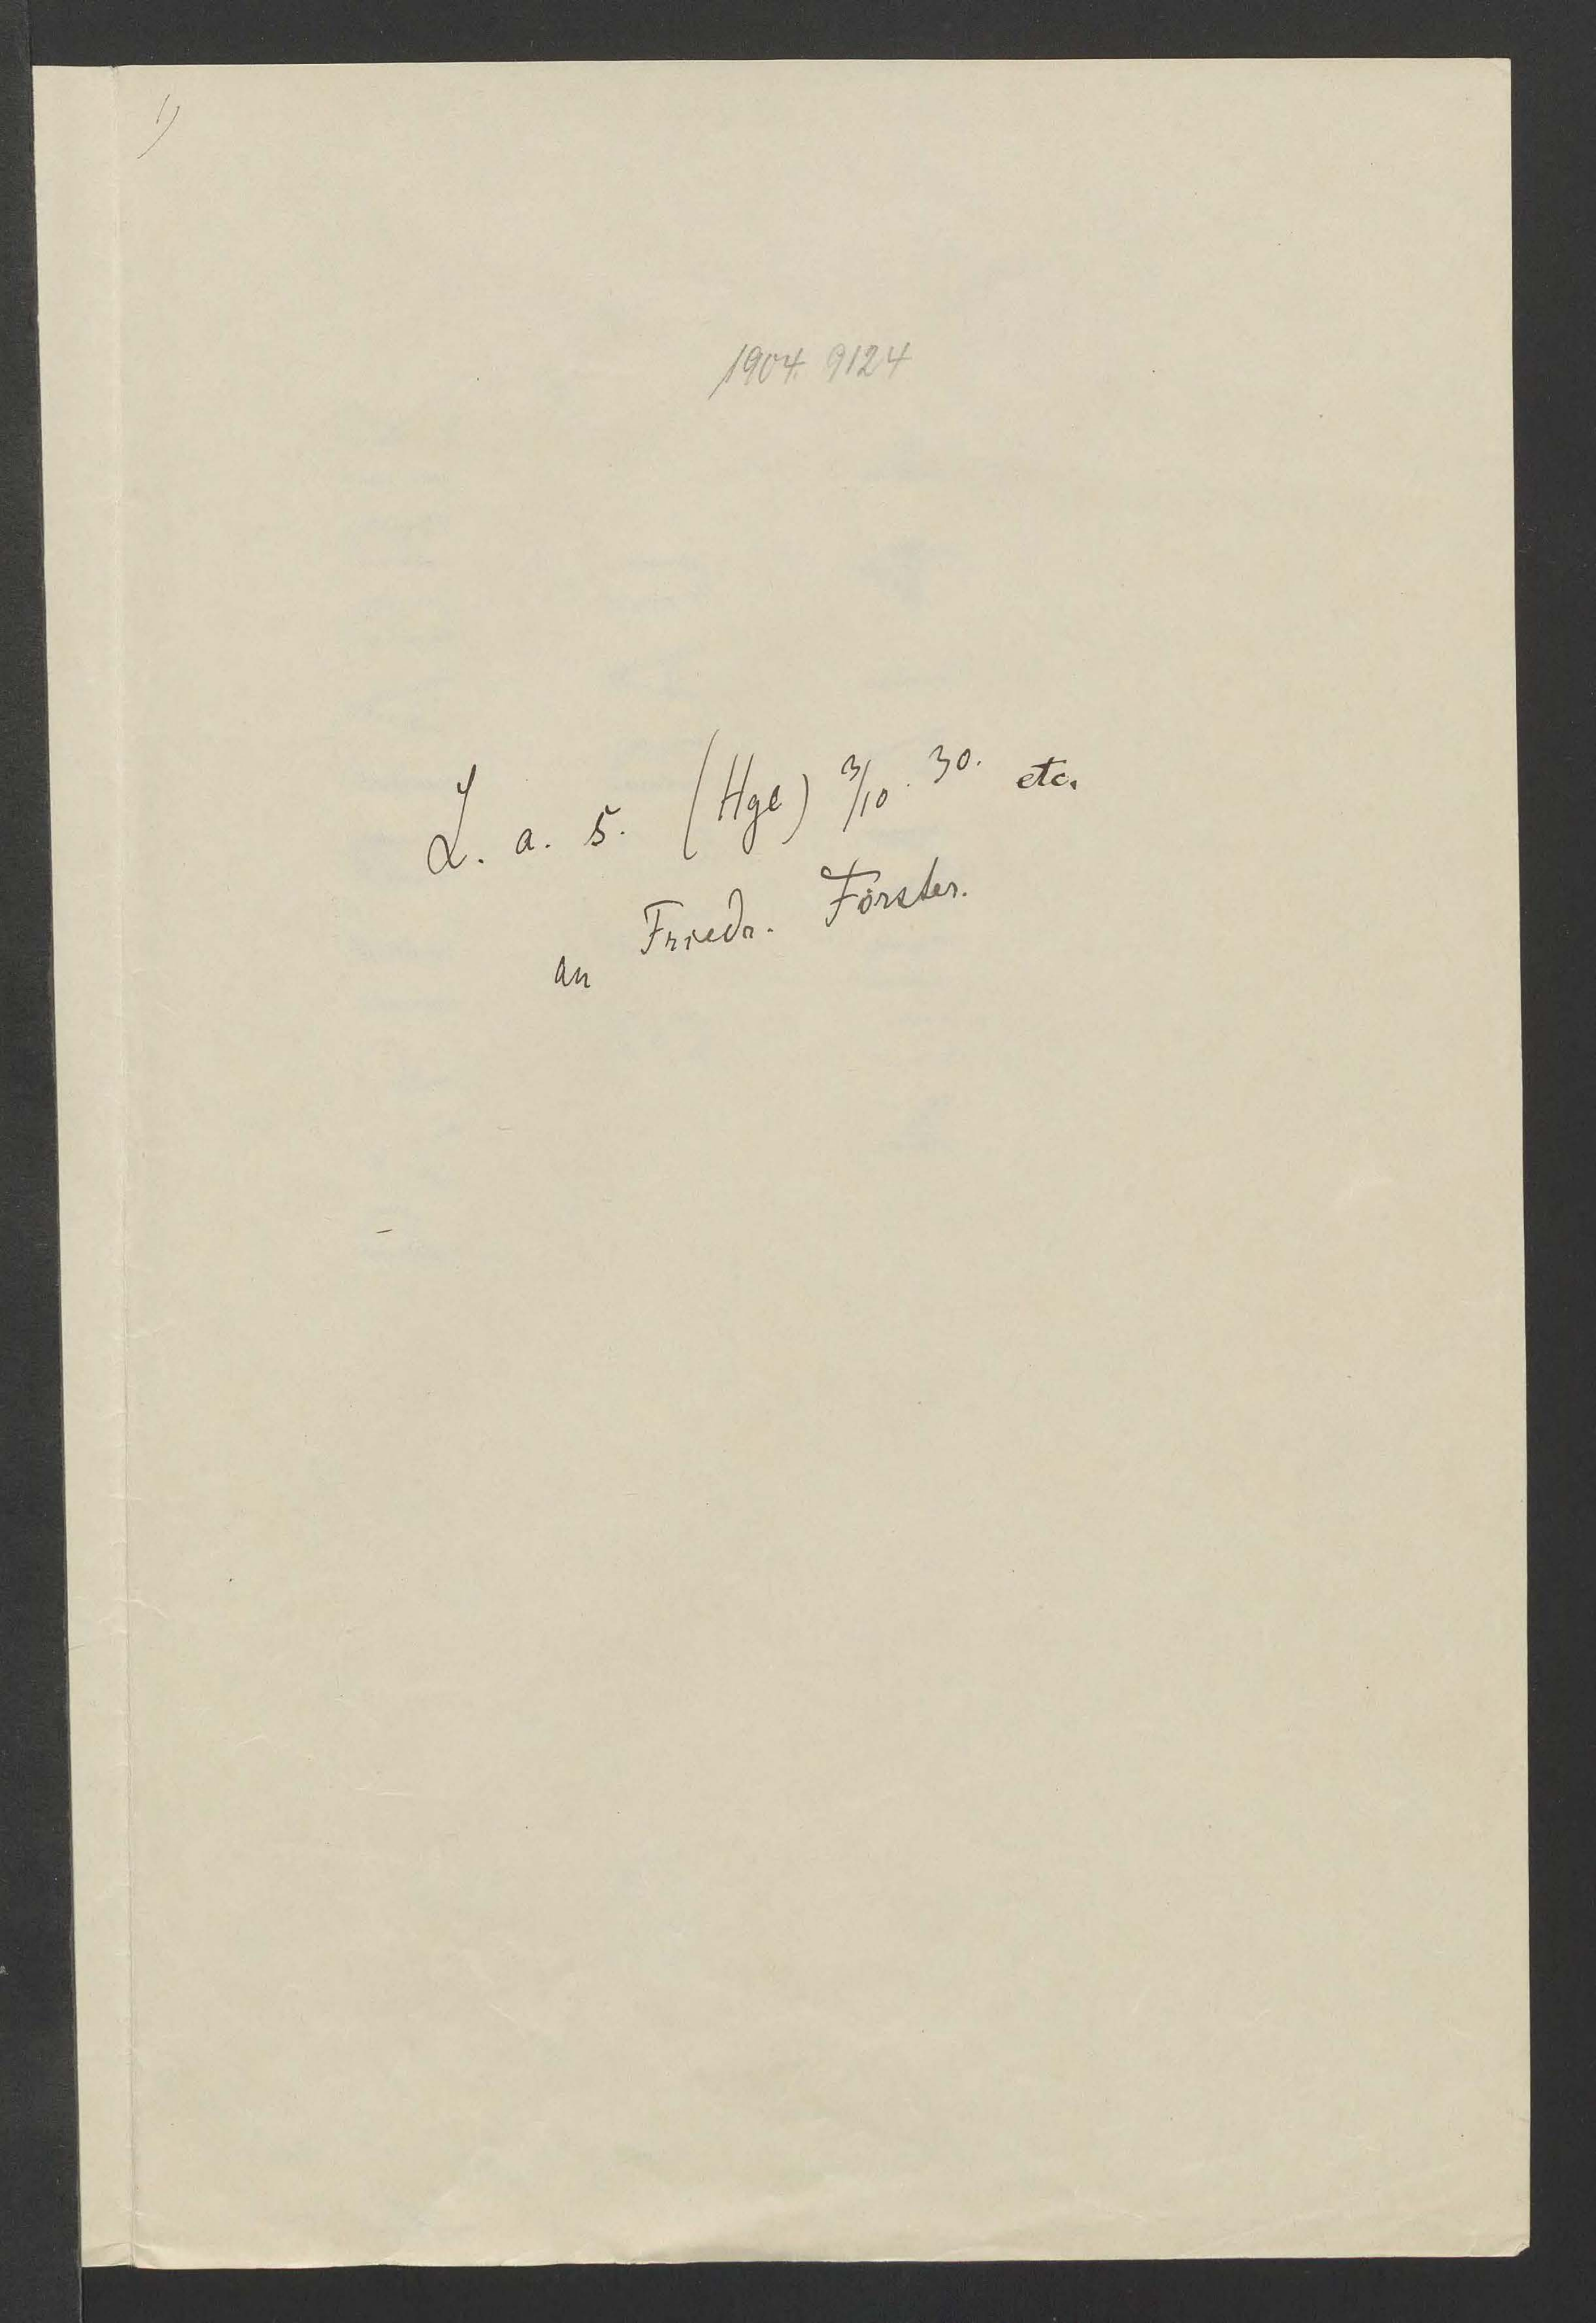 1)
1904. 9124
L. a. s. (Hgl) 3/10. 30. etc.
an Friedr. Förster.